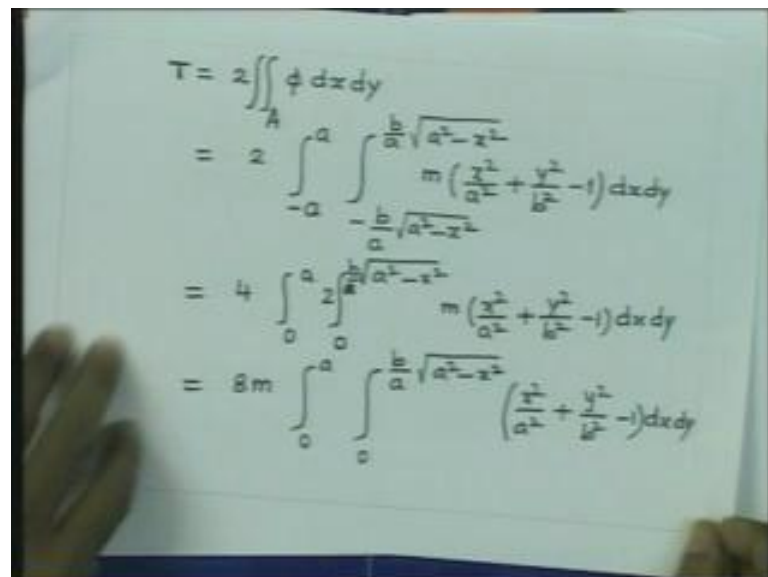 T = 2∬_A ϕ dxdy
= 2 ∫_{-a}^{a} ∫_{-b/a √(a²-x²)}^{b/a √(a²-x²)} m(x²/a² + y²/b² -1) dxdy
= 4 ∫_0^a 2∫_0^{b/a √(a²-x²)} m(x²/a² + y²/b² -1) dxdy
= 8m ∫_0^a ∫_0^{b/a √(a²-x²)} (x²/a² + y²/b² -1) dxdy